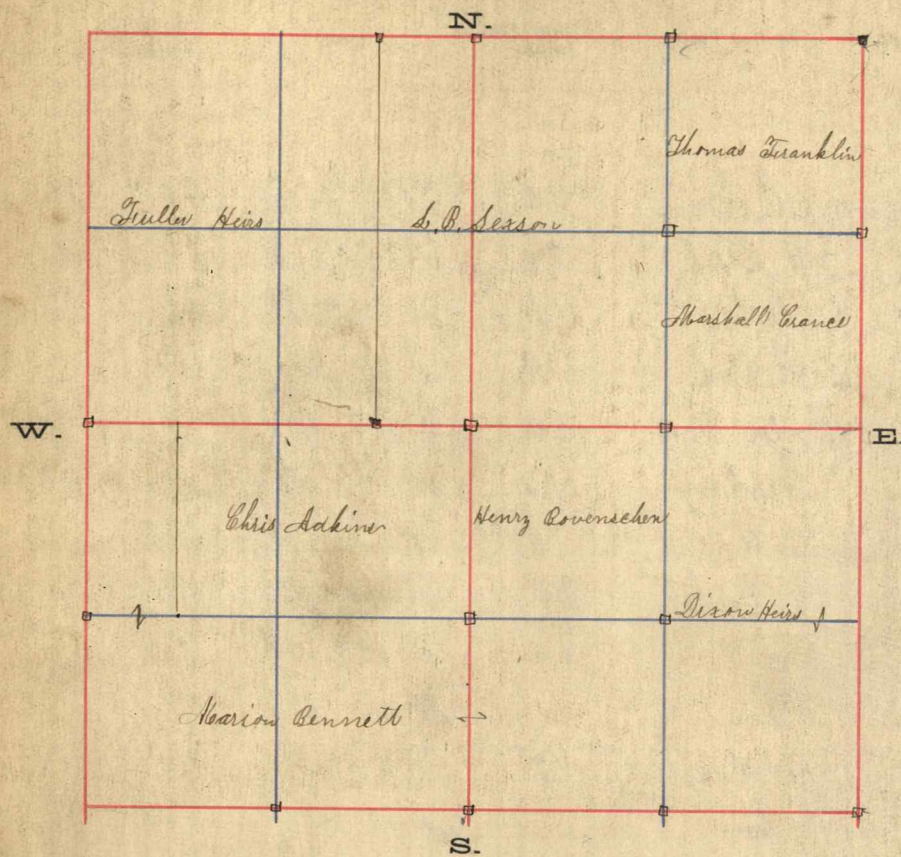 N.
Thomas Franklin
Fuller Heirs
S. B. Sexson
Marshall Crance
W.
E.
Chris Adkins
Henry Bovenschen
Dixon Heirs
Marion Bennett
S.